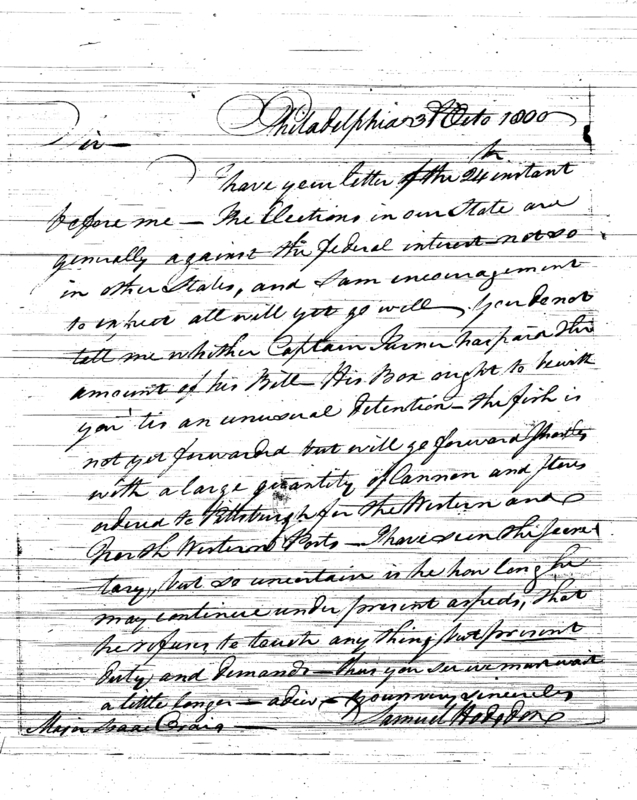 Philadelphia 31 Octo 1800
Sir —
I have your letter of the 24th instant
before me — The Elections in our State are
generally against the federal interest — not so
in other States, and I am encouragement
to expect all will yet go well. You do not
tell me whither Captain Turner has paid the
amount of his Bill — His Box ought to be with
you 'tis an unusual detention — the fish is
not yet forwarded but will go forward
with a large quantity of Cannon and Stores
ordered to Pittsburgh for the Western and
North Western Posts — I have seen the Secre
tary, but so uncertain is he how long he
may continue under present aspects, that
he refuses to touch any thing but present
duty and demands — thus you see we must wait
a little longer — adieu — yours very sincerely
Samuel Hodgdon
Major Isaac Craig —